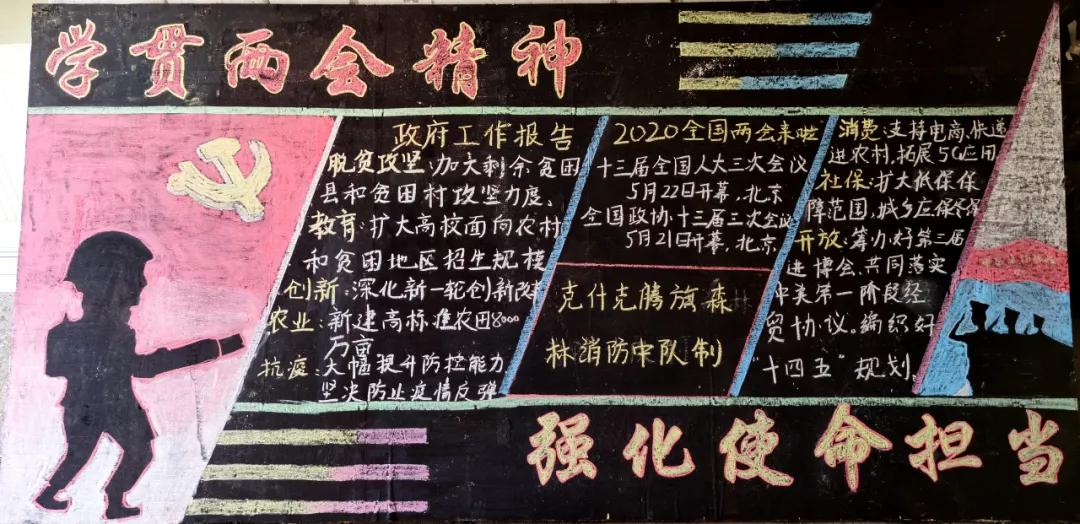 学贯两会精神
政府工作报告
脱贫攻坚:加大剩余贫困
县和贫困村攻坚力度、
教育:扩大高校面向农村
和贫困地区招生规模
创新:深化新一轮创新改革
农业:新建高标准农田8000
万亩
抗疫:大幅提升防控能力
坚决防止疫情反弹
2020全国两会来啦
十三届全国人大三次会议
5月22日开幕,北京
全国政协十三届三次会议
5月21日开幕,北京
克什克腾旗森
林消防中队制
消费:支持电商、快递
进农村,拓展5G应用
社保:扩大低保保
障范围,城乡应保尽保
开放:筹办好第三届
进博会、共同落实
中美第一阶段经
贸协议。编织好
“十四五”规划。
强化使命担当